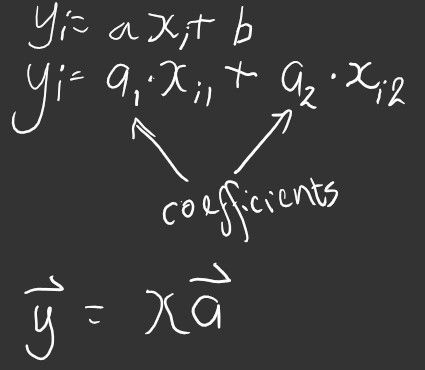 yᵢ= axᵢ+ b
yᵢ= a₁·xᵢ₁ + a₂·xᵢ₂
coefficients
y⃗ = xa⃗